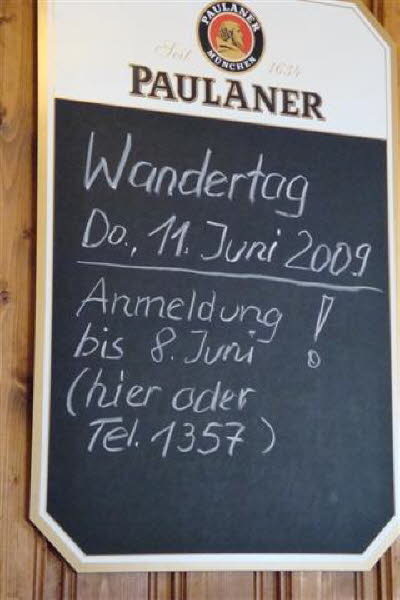 PAULANER
MÜNCHEN
Seit 1634
PAULANER
Wandertag
Do., 11. Juni 2009
Anmeldung !
bis 8. Juni
(hier oder
Tel. 1357)